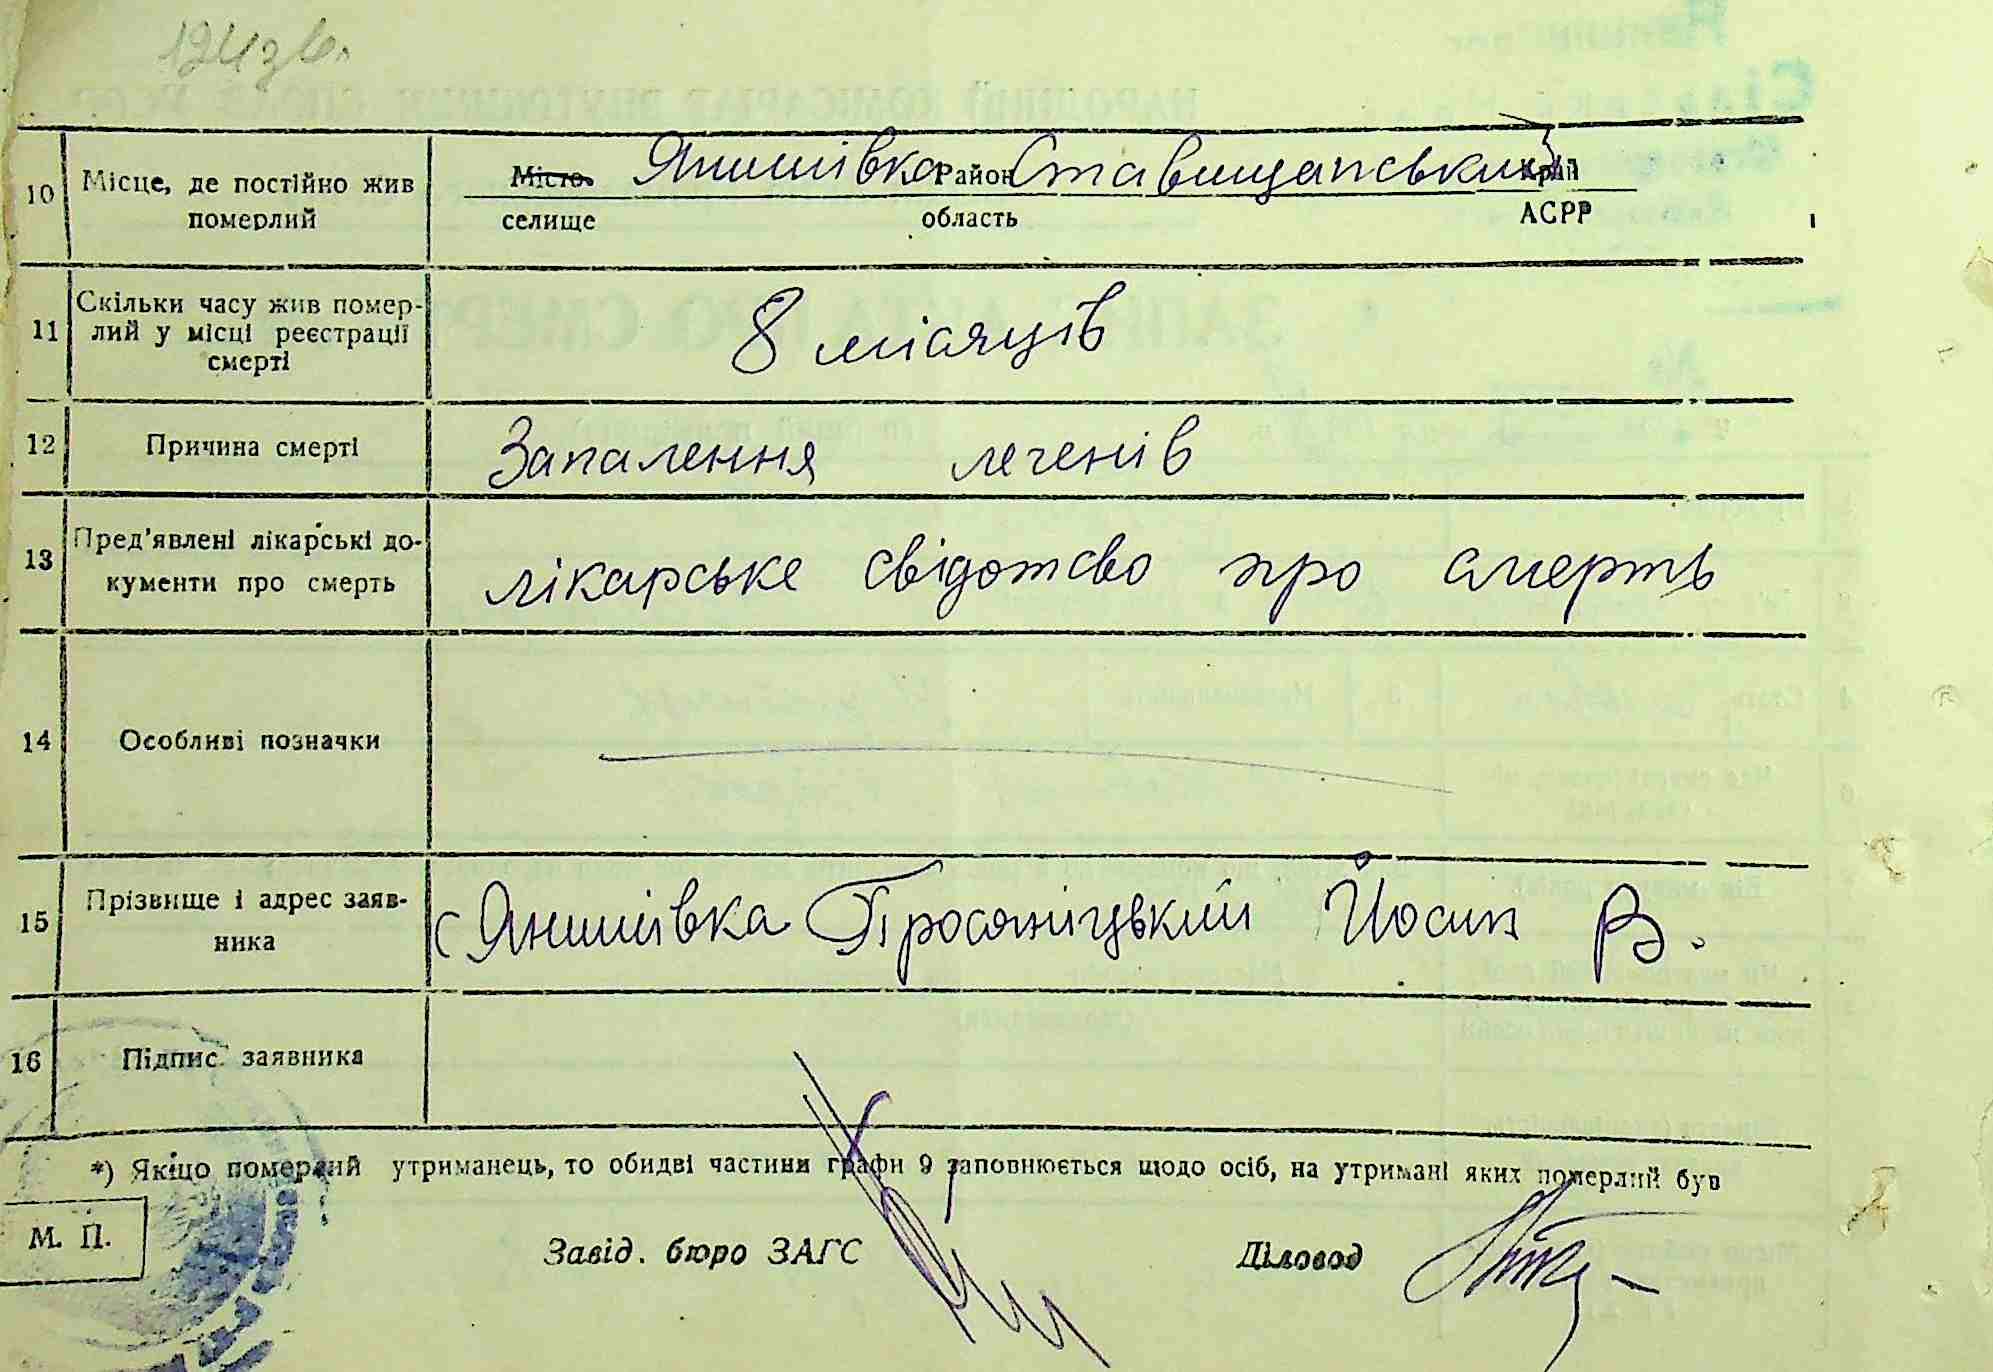 10 Місце, де постійно жив померлий
Місто селище Янишівка Район область Ставищанський Край АСРР
11 Скільки часу жив помер-
лий у місці реєстрації
смерті
8 місяців
12 Причина смерті Запалення легенів
13 Пред'явлені лікарські до-
кументи про смерть
лікарське свідотсво про смерть
14 Особливі позначки
15 Прізвище і адрес заяв-
ника
с Янишівка Просяніцький Йосип В.
16 Підпис заявника
*) Якщо померлий утриманець, то обидві частини графи 9 заповнюється щодо осіб, на утримані яких померлий був
М. П.
Завід. бюро ЗАГС Діловод